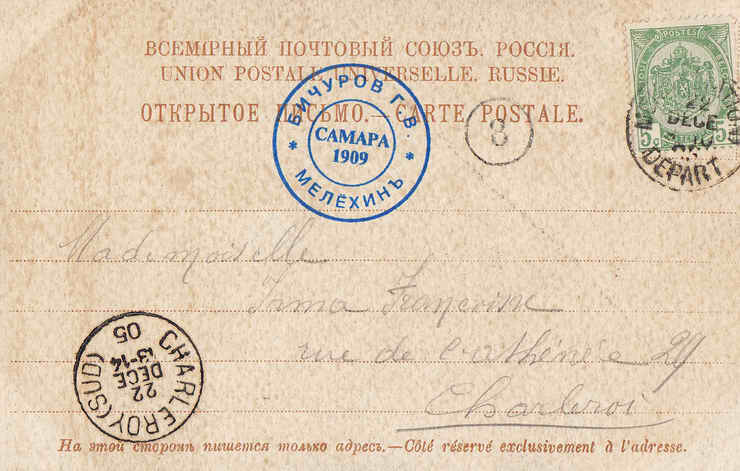 ВСЕМІРНЫЙ ПОЧТОВЫЙ СОЮЗЪ. РОССІЯ.
UNION POSTALE UNIVERSELLE. RUSSIE.
ОТКРЫТОЕ ПИСЬМО.—CARTE POSTALE.
БИЧУРОВ Г.В.
САМАРА
1909
МЕЛЁХИНЪ
8
POSTES
5c
5
22
DECE
DEPART
Mademoiselle
Irma Françoise
rue de 29
Charleroi
CHARLEROY (SUD)
22
DECE
13-14
05
На этой сторонѣ пишется только адресъ.—Côté réservé exclusivement à l'adresse.